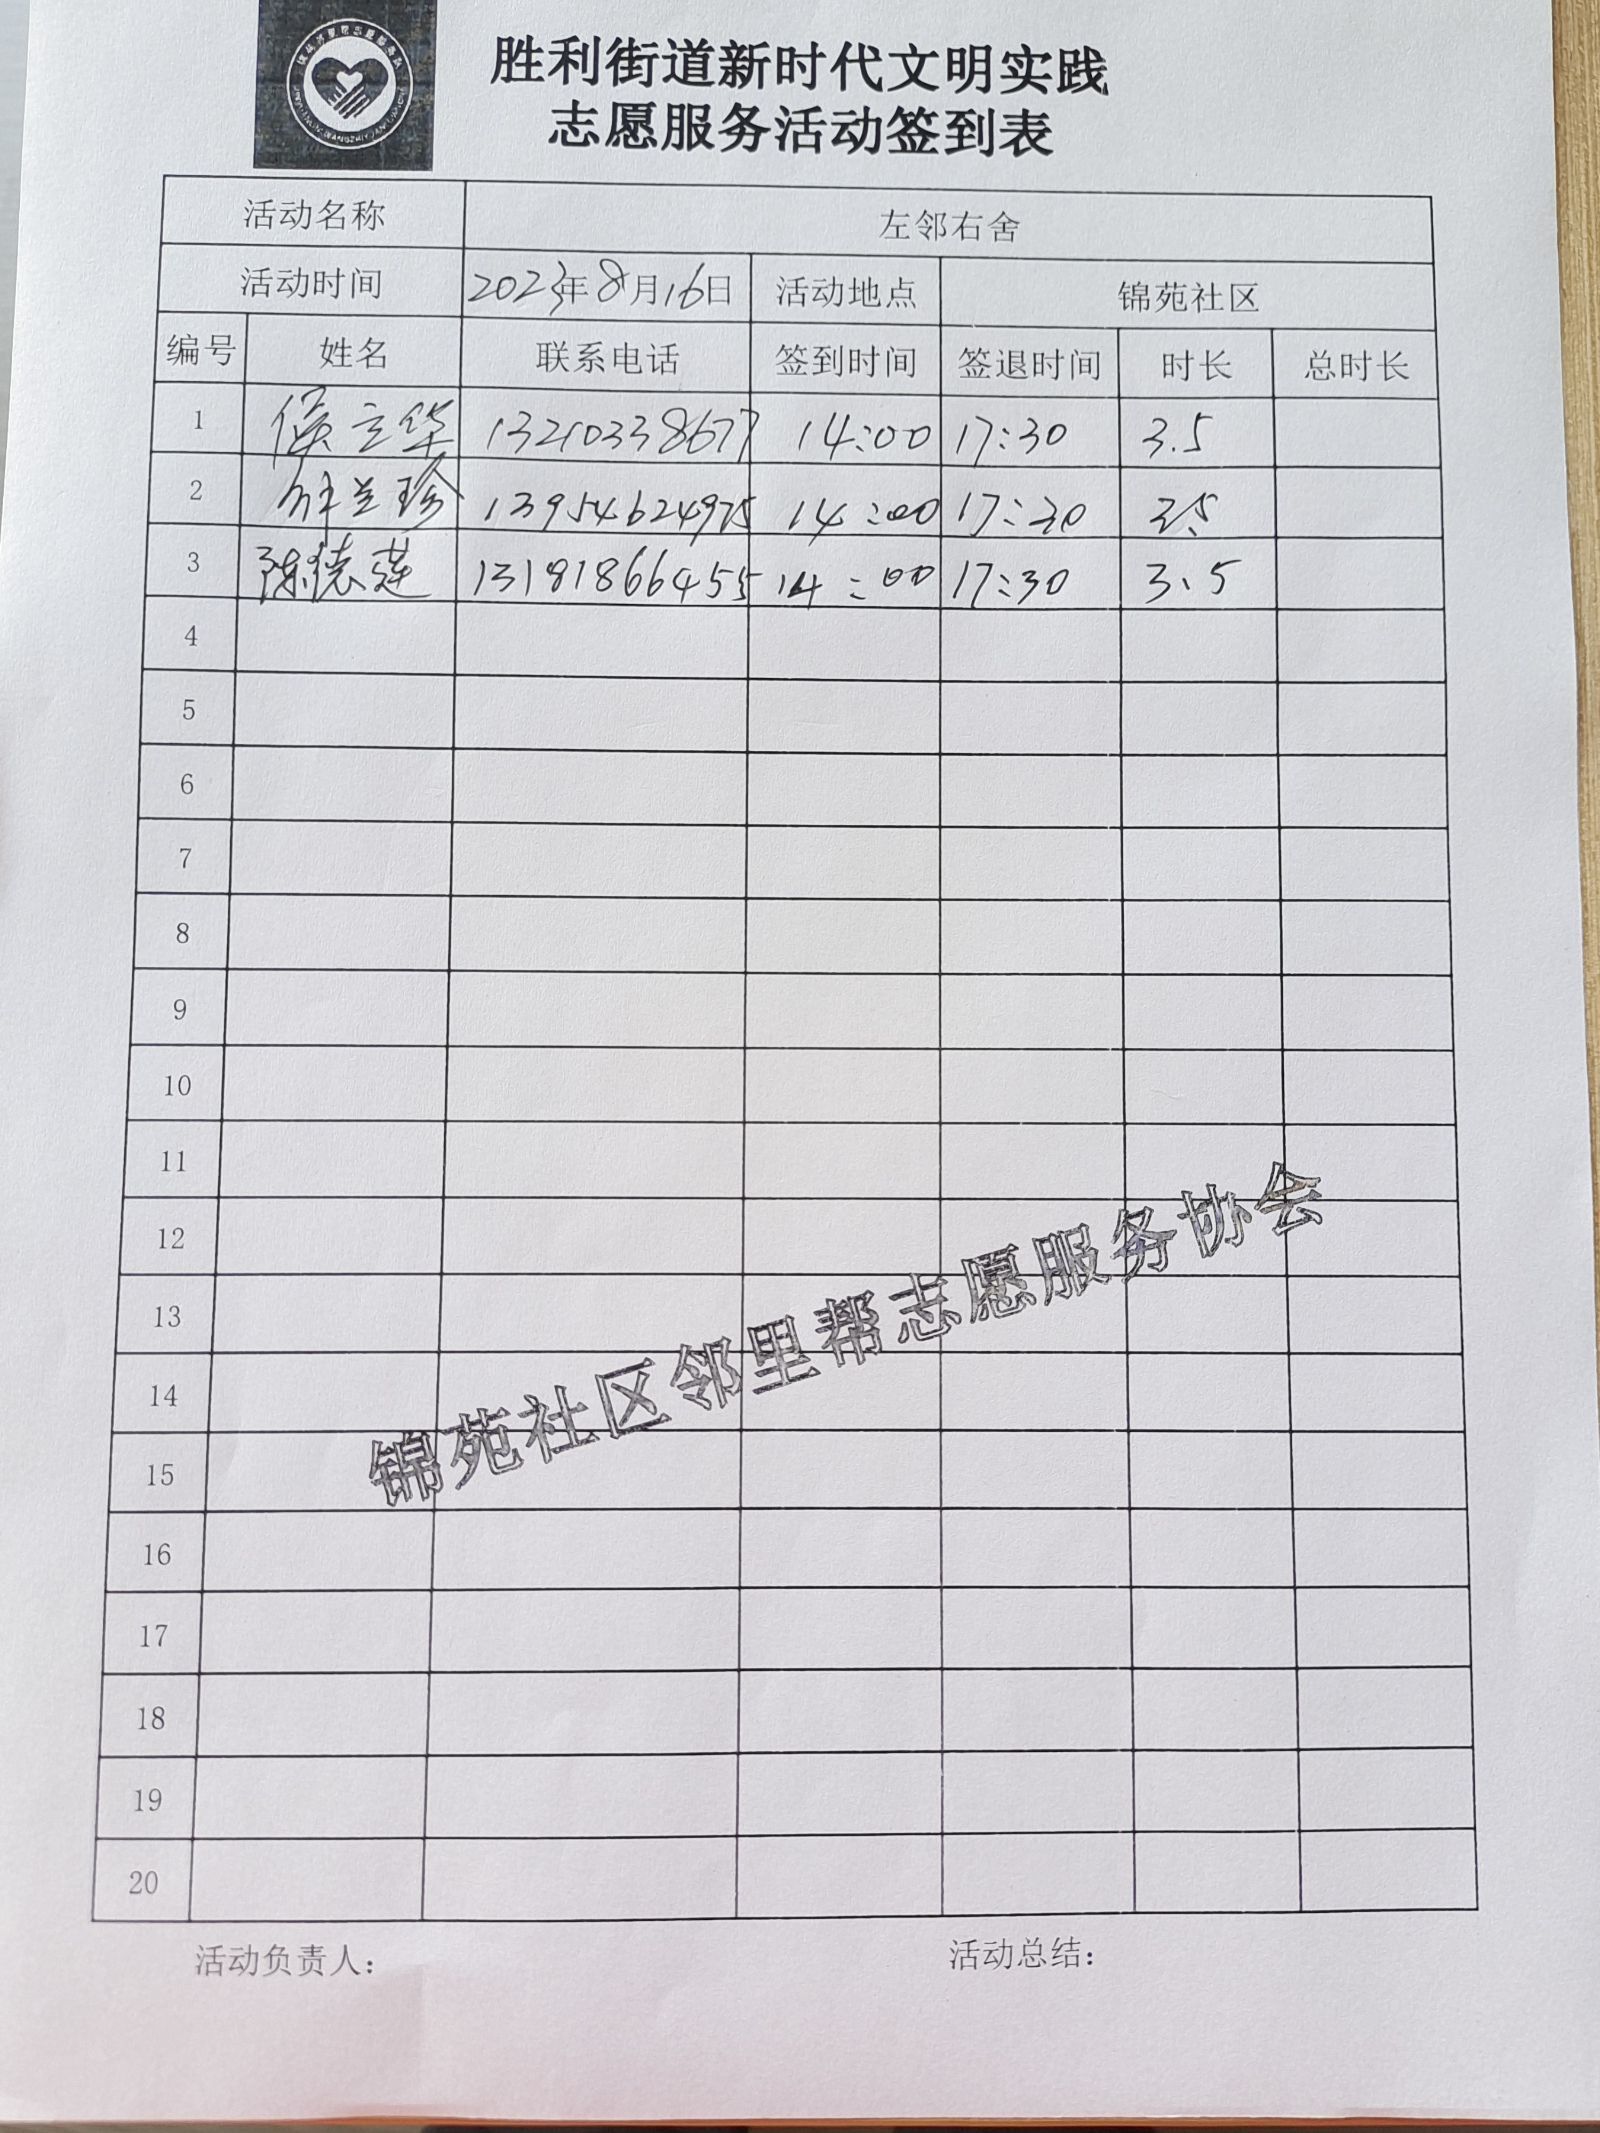 胜利街道新时代文明实践
志愿服务活动签到表
活动名称 左邻右舍
活动时间 2023年8月16日 活动地点 锦苑社区
编号 姓名 联系电话 签到时间 签退时间 时长 总时长
1 侯立华 13210338677 14:00 17:30 3.5
2 兰珍 13954624975 14:00 17:30 3.5
3 陈德莲 13181866455 14:00 17:30 3.5
4
5
6
7
8
9
10
11
12
13
14
15
16
17
18
19
20
锦苑社区邻里帮志愿服务协会
活动负责人： 活动总结：